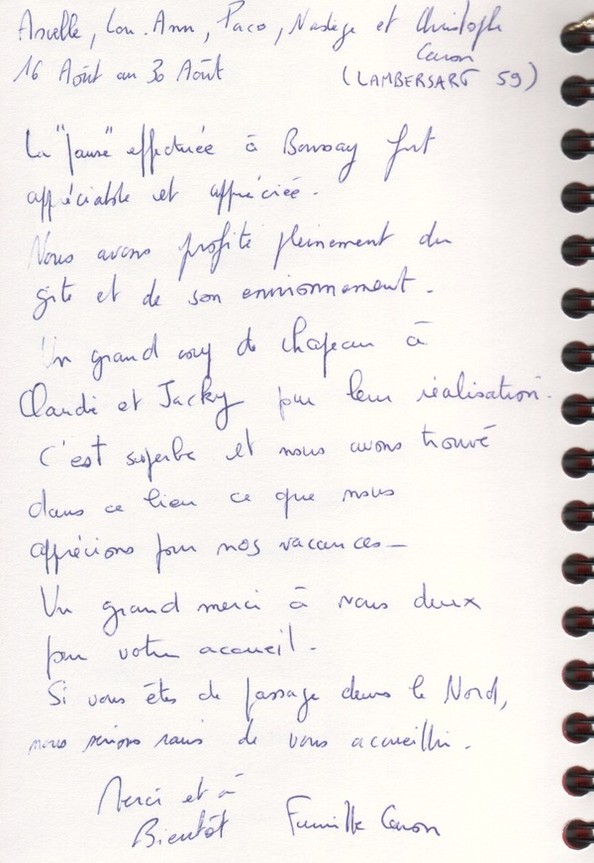 Axelle, Lou-Ann, Paco, Nadège et Christophe
Caron
16 Août au 30 Août (LAMBERSART 59)
La "pause" effectuée à Boussay fut
appréciable et appréciée.
Nous avons profité pleinement du
gîte et de son environnement.
Un grand coup de chapeau à
Claudie et Jacky pour leur réalisation.
C'est superbe et nous avons trouvé
dans ce lieu ce que nous
apprécions pour nos vacances -
Un grand merci à vous deux
pour votre accueil.
Si vous êtes de passage dans le Nord,
nous serions ravis de vous accueillir.
Merci et à
Bientôt Famille Caron